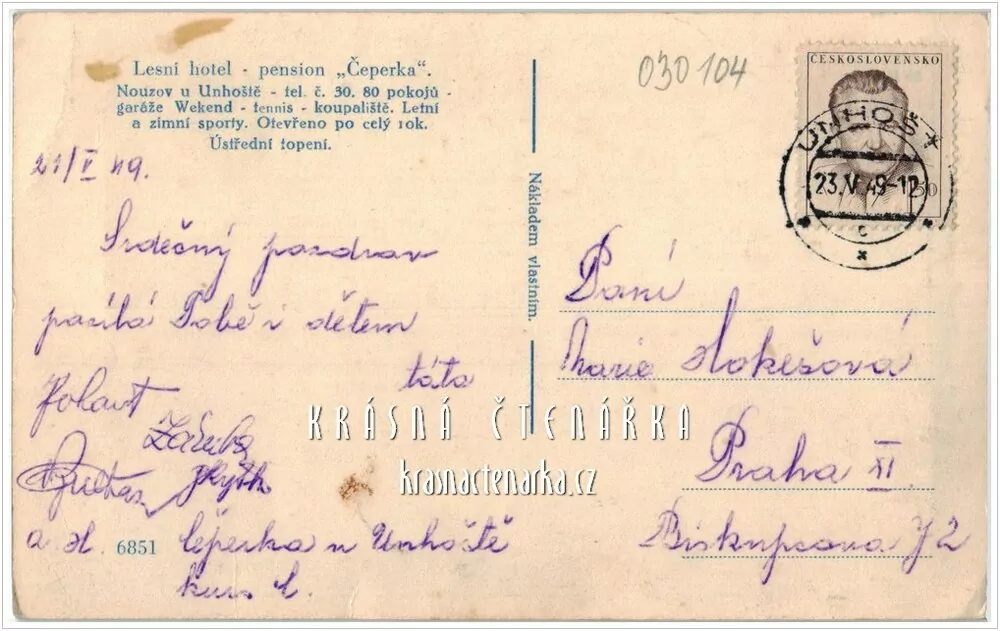 Lesní hotel - pension „Čeperka".
Nouzov u Unhoště - tel. č. 30. 80 pokojů -
garáže Wekend - tennis - koupaliště. Letní
a zimní sporty. Otevřeno po celý rok.
Ústřední topení.
030104
ČESKOSLOVENSKO
UNHOŠŤ
23.V.49-12
1.50
c
21/V 49.
Srdečný pozdrav
posílá Tobě i dětem
táta
Nákladem vlastním.
Paní
Marie Hokešová
Praha XI
Biskupcova 72
KRÁSNÁ ČTENÁŘKA
krasnactenarka.cz
6851 Čeperka u Unhoště